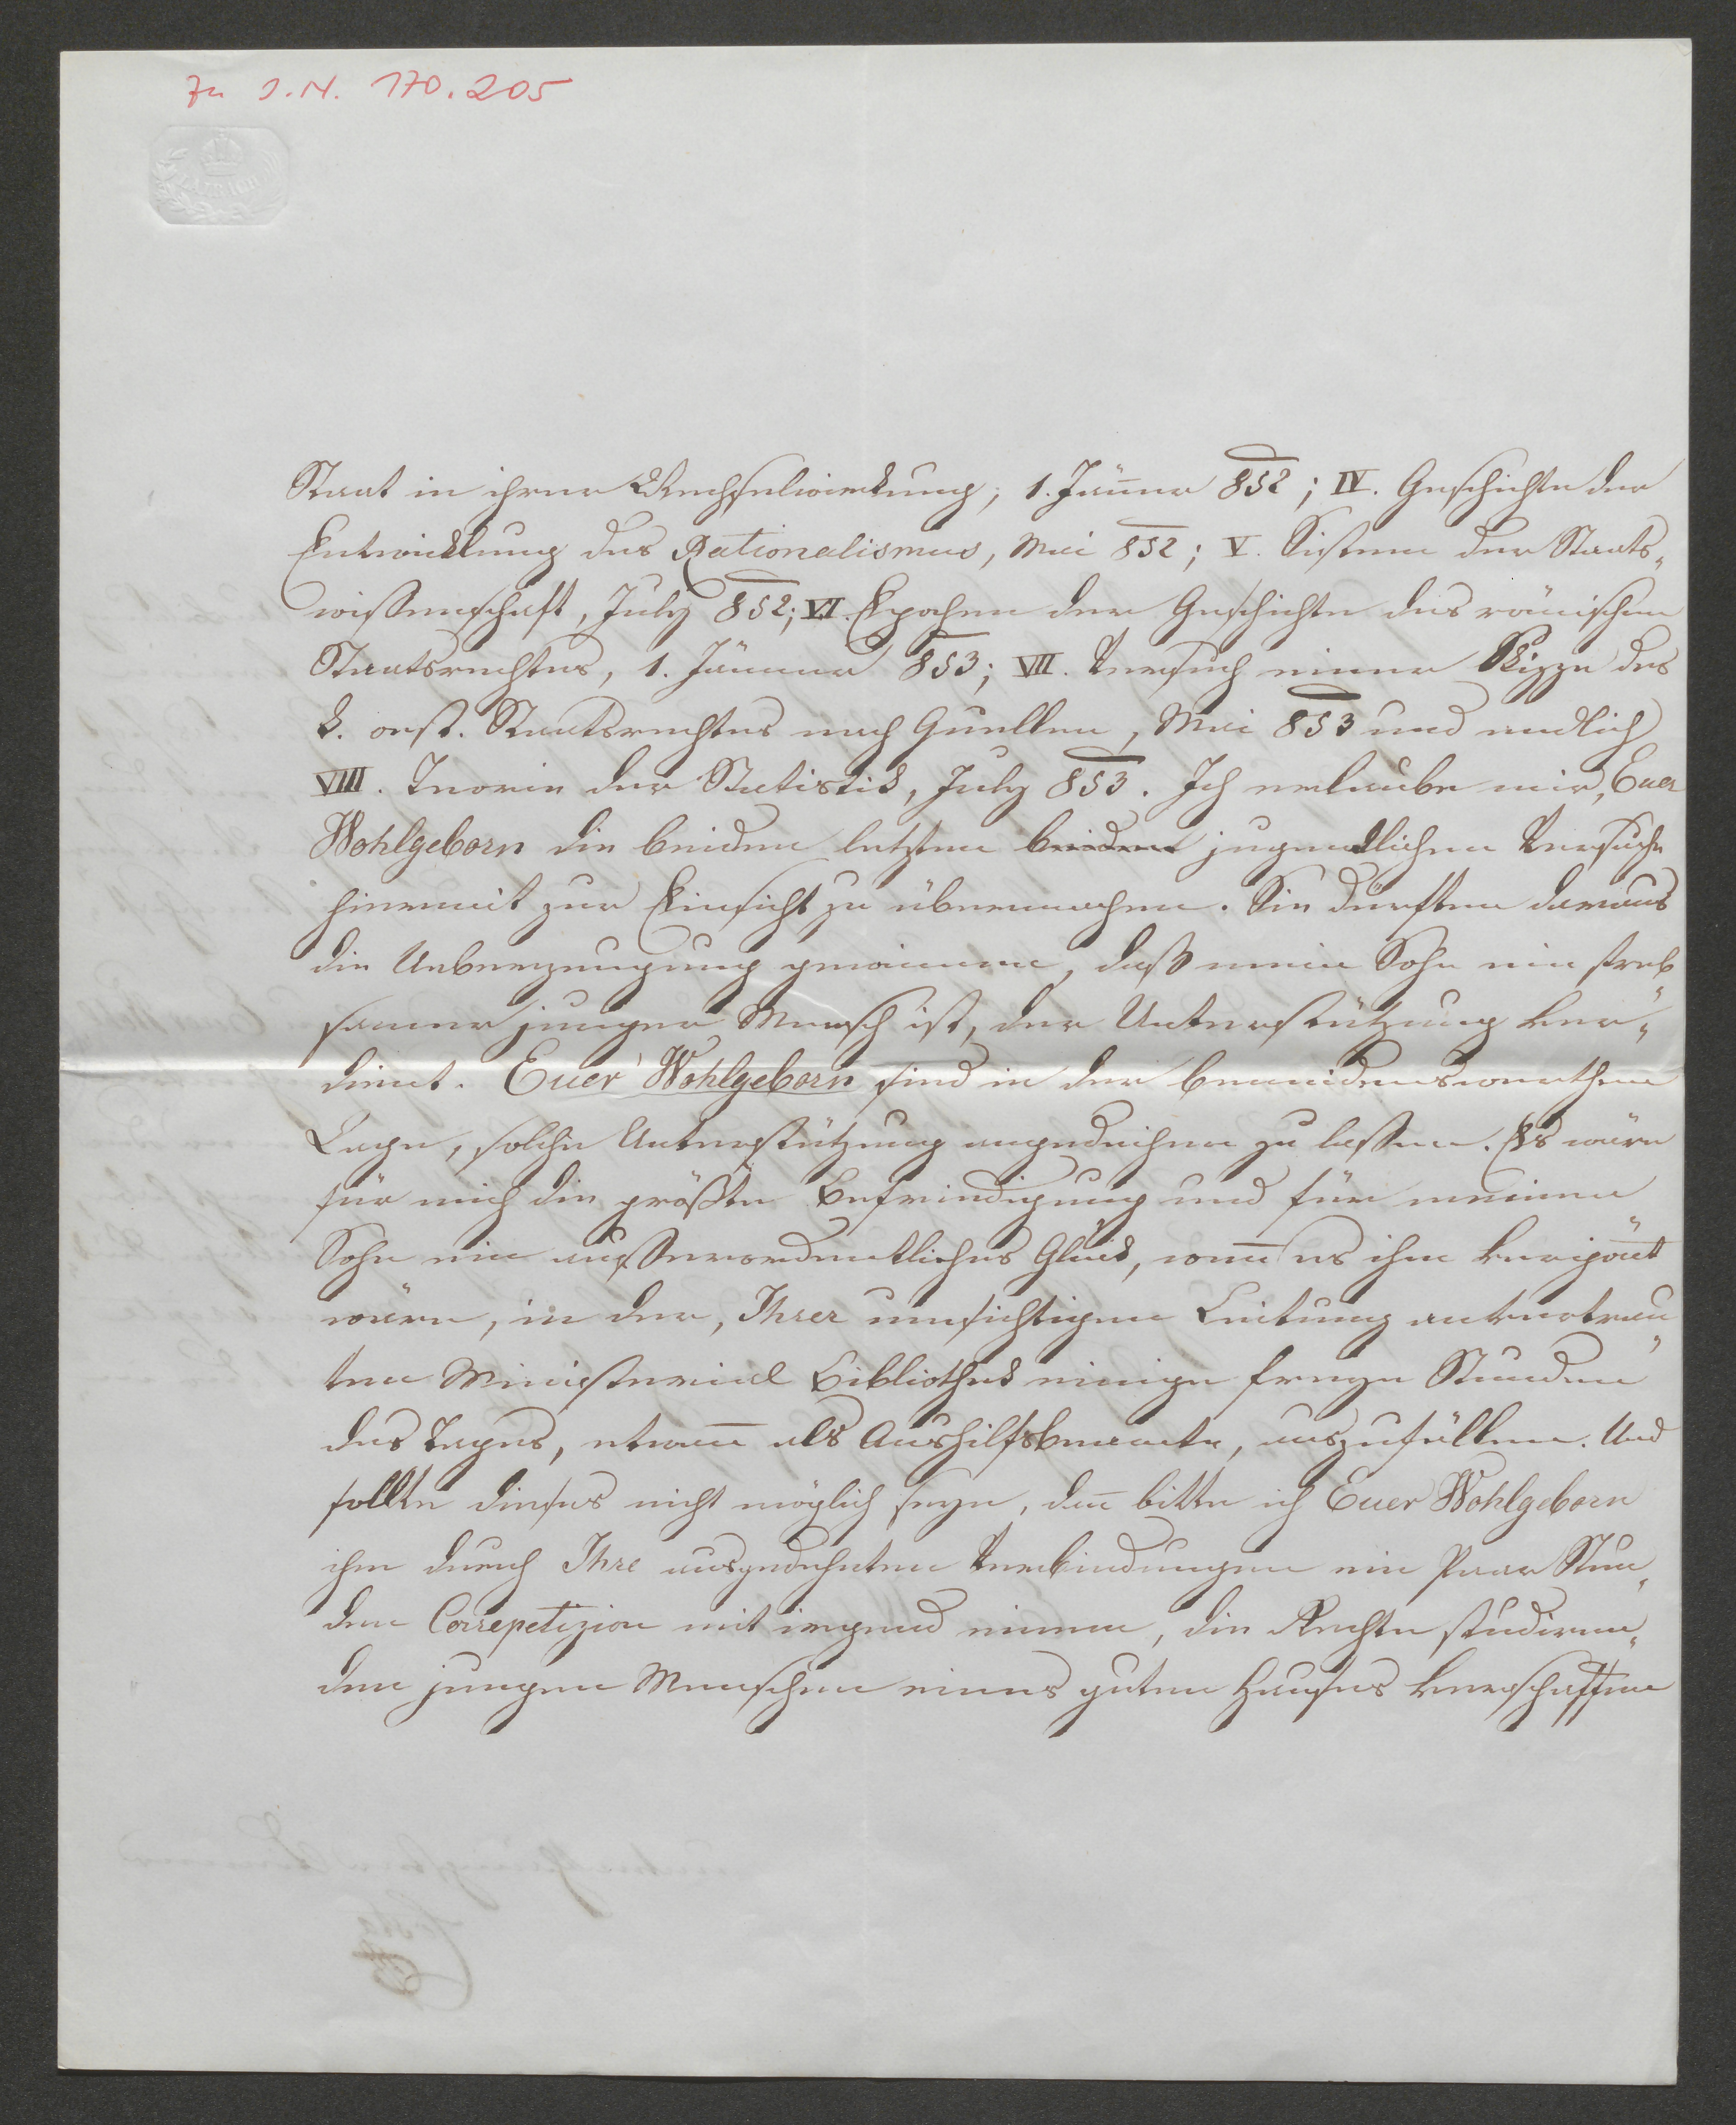 Zu I.N. 170.205
Staat in ihrer Wechselwirkung, 1. Jänner 852; IV. Geschichte der
Entwicklung des Rationalismus, Mai 852; V. Sistem der Staats„
wissenschaft, July 852; VI. Epochen der Geschichte des römischen
Staatsrechtes, 1. Jänner 853; VII. Versuch einer Skizze des
k. oest. Staatsrechtes nach Quellen, Mai 853 und endlich
VIII. Teorie der Statistik, July 853. Ich erlaube mir, Euer
Wohlgeborn die beiden letzten beiden jugendlichen Versuche
hiermit zur Einsicht zu übermachen. Sie dürften daraus
die Ueberzeugung gewinnen, daß mein Sohn ein streb„
samer junger Mensch ist, der Unterstützung ver„
dient. Euer Wohlgeborn sind in der beneidenswerthen
Lage, solche Unterstützung angedeihen zu lassen. Es wäre
für mich die größte Befriedigung und für meinen
Sohn ein außerordentliches Glück, wen̄ es ihm vergön̄t
wäre, in der, Ihrer umsichtigen Leitung anvertrau„
ten Ministerial Bibliothek einige freye Stunden
des Tages, etwan̄ als Aushilfsbeamte, auszufüllen. Und
sollte dieses nicht möglich seyn, dan̄ bitte ich Euer Wohlgeborn
ihm durch Ihre ausgedehnten Verbindungen ein Paar Stun„
den Correpetizion mit irgend einem, die Rechte studiren„
den jungen Menschen eines guten Hauses verschaffen